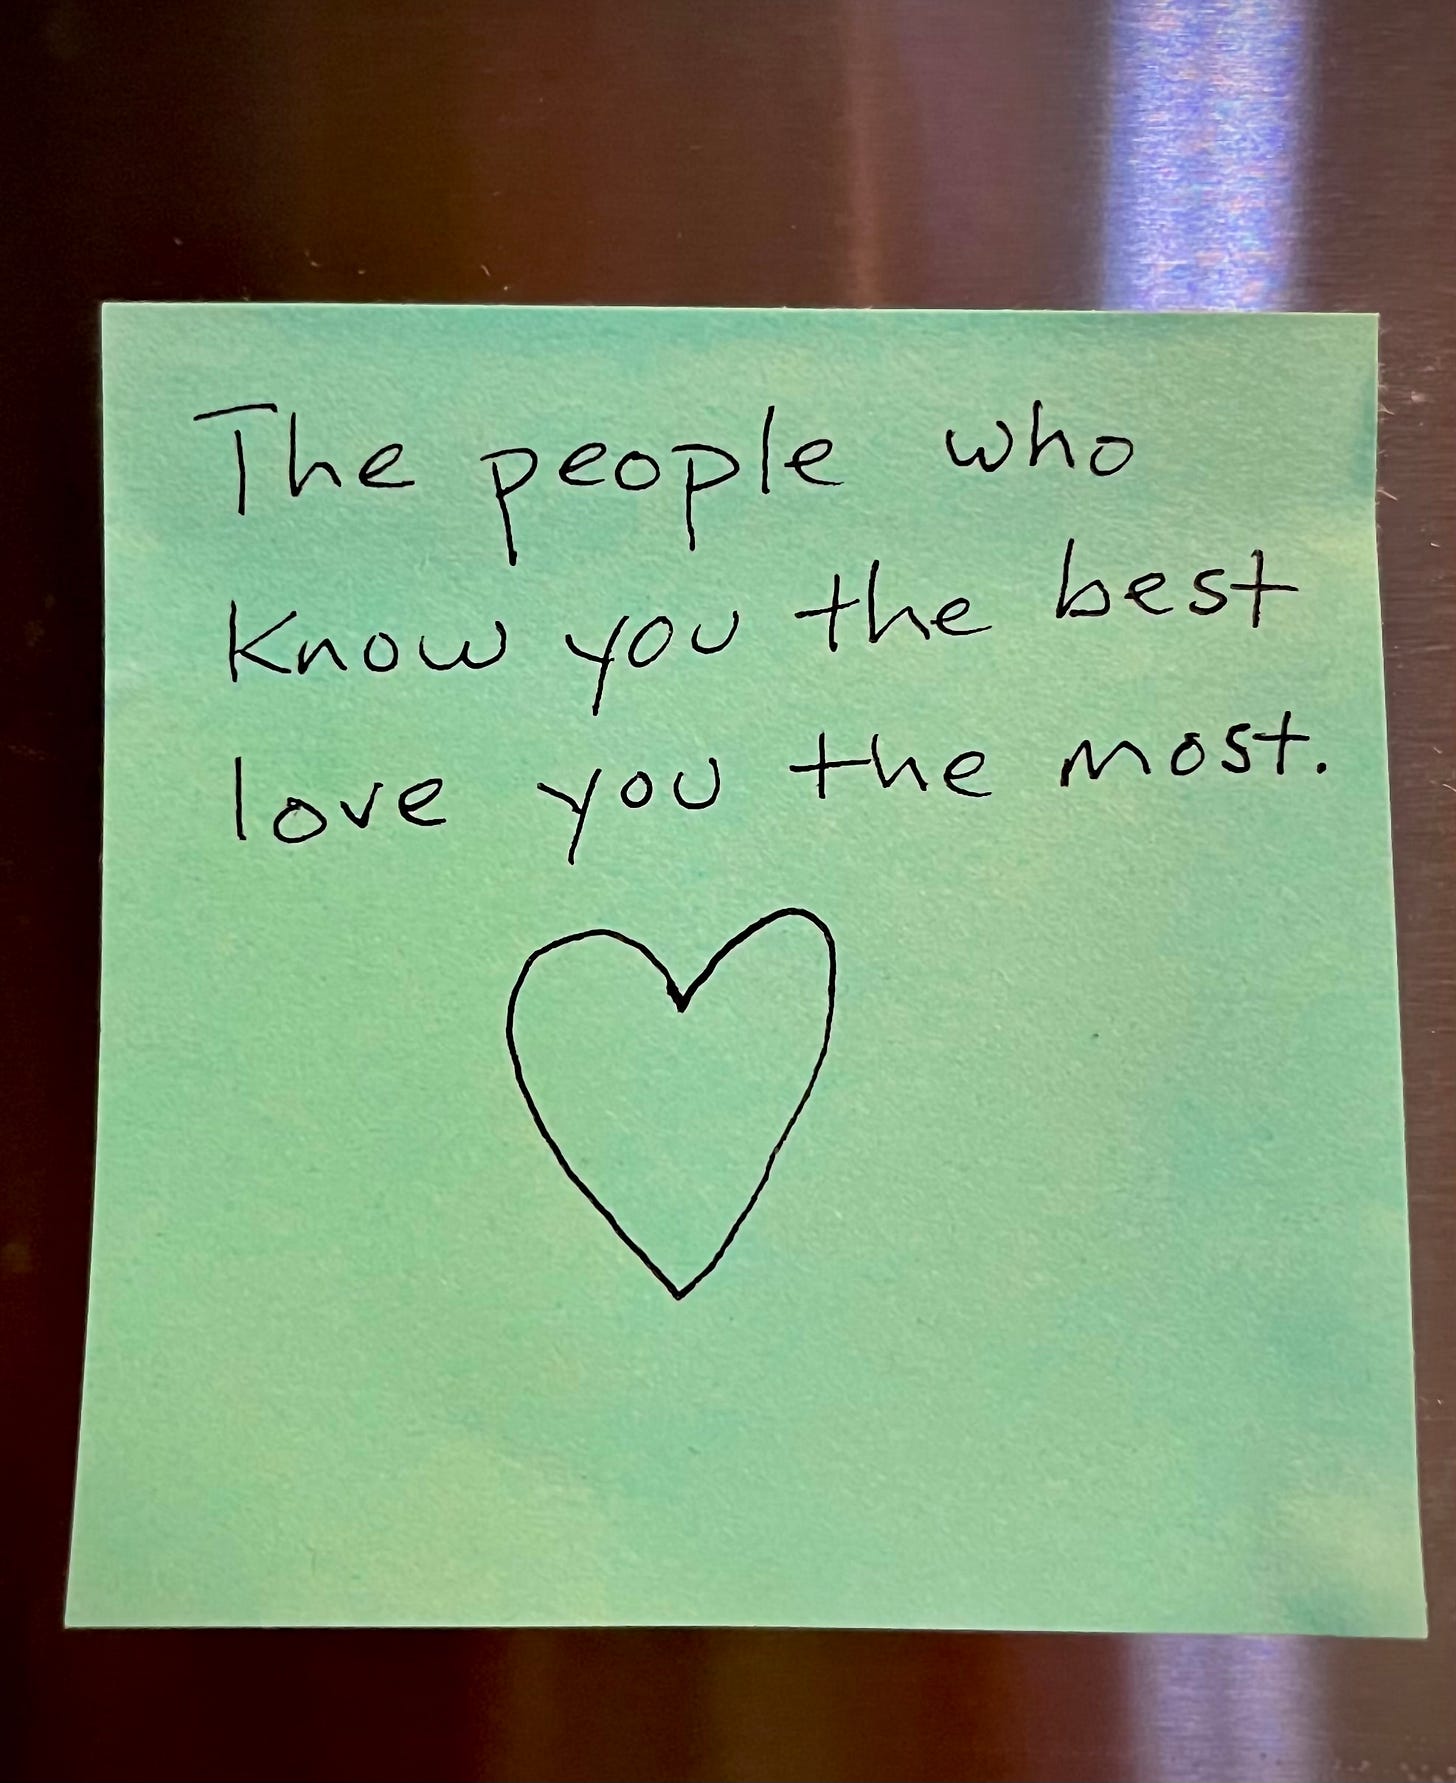 The people who
Know you the best
love you the most.